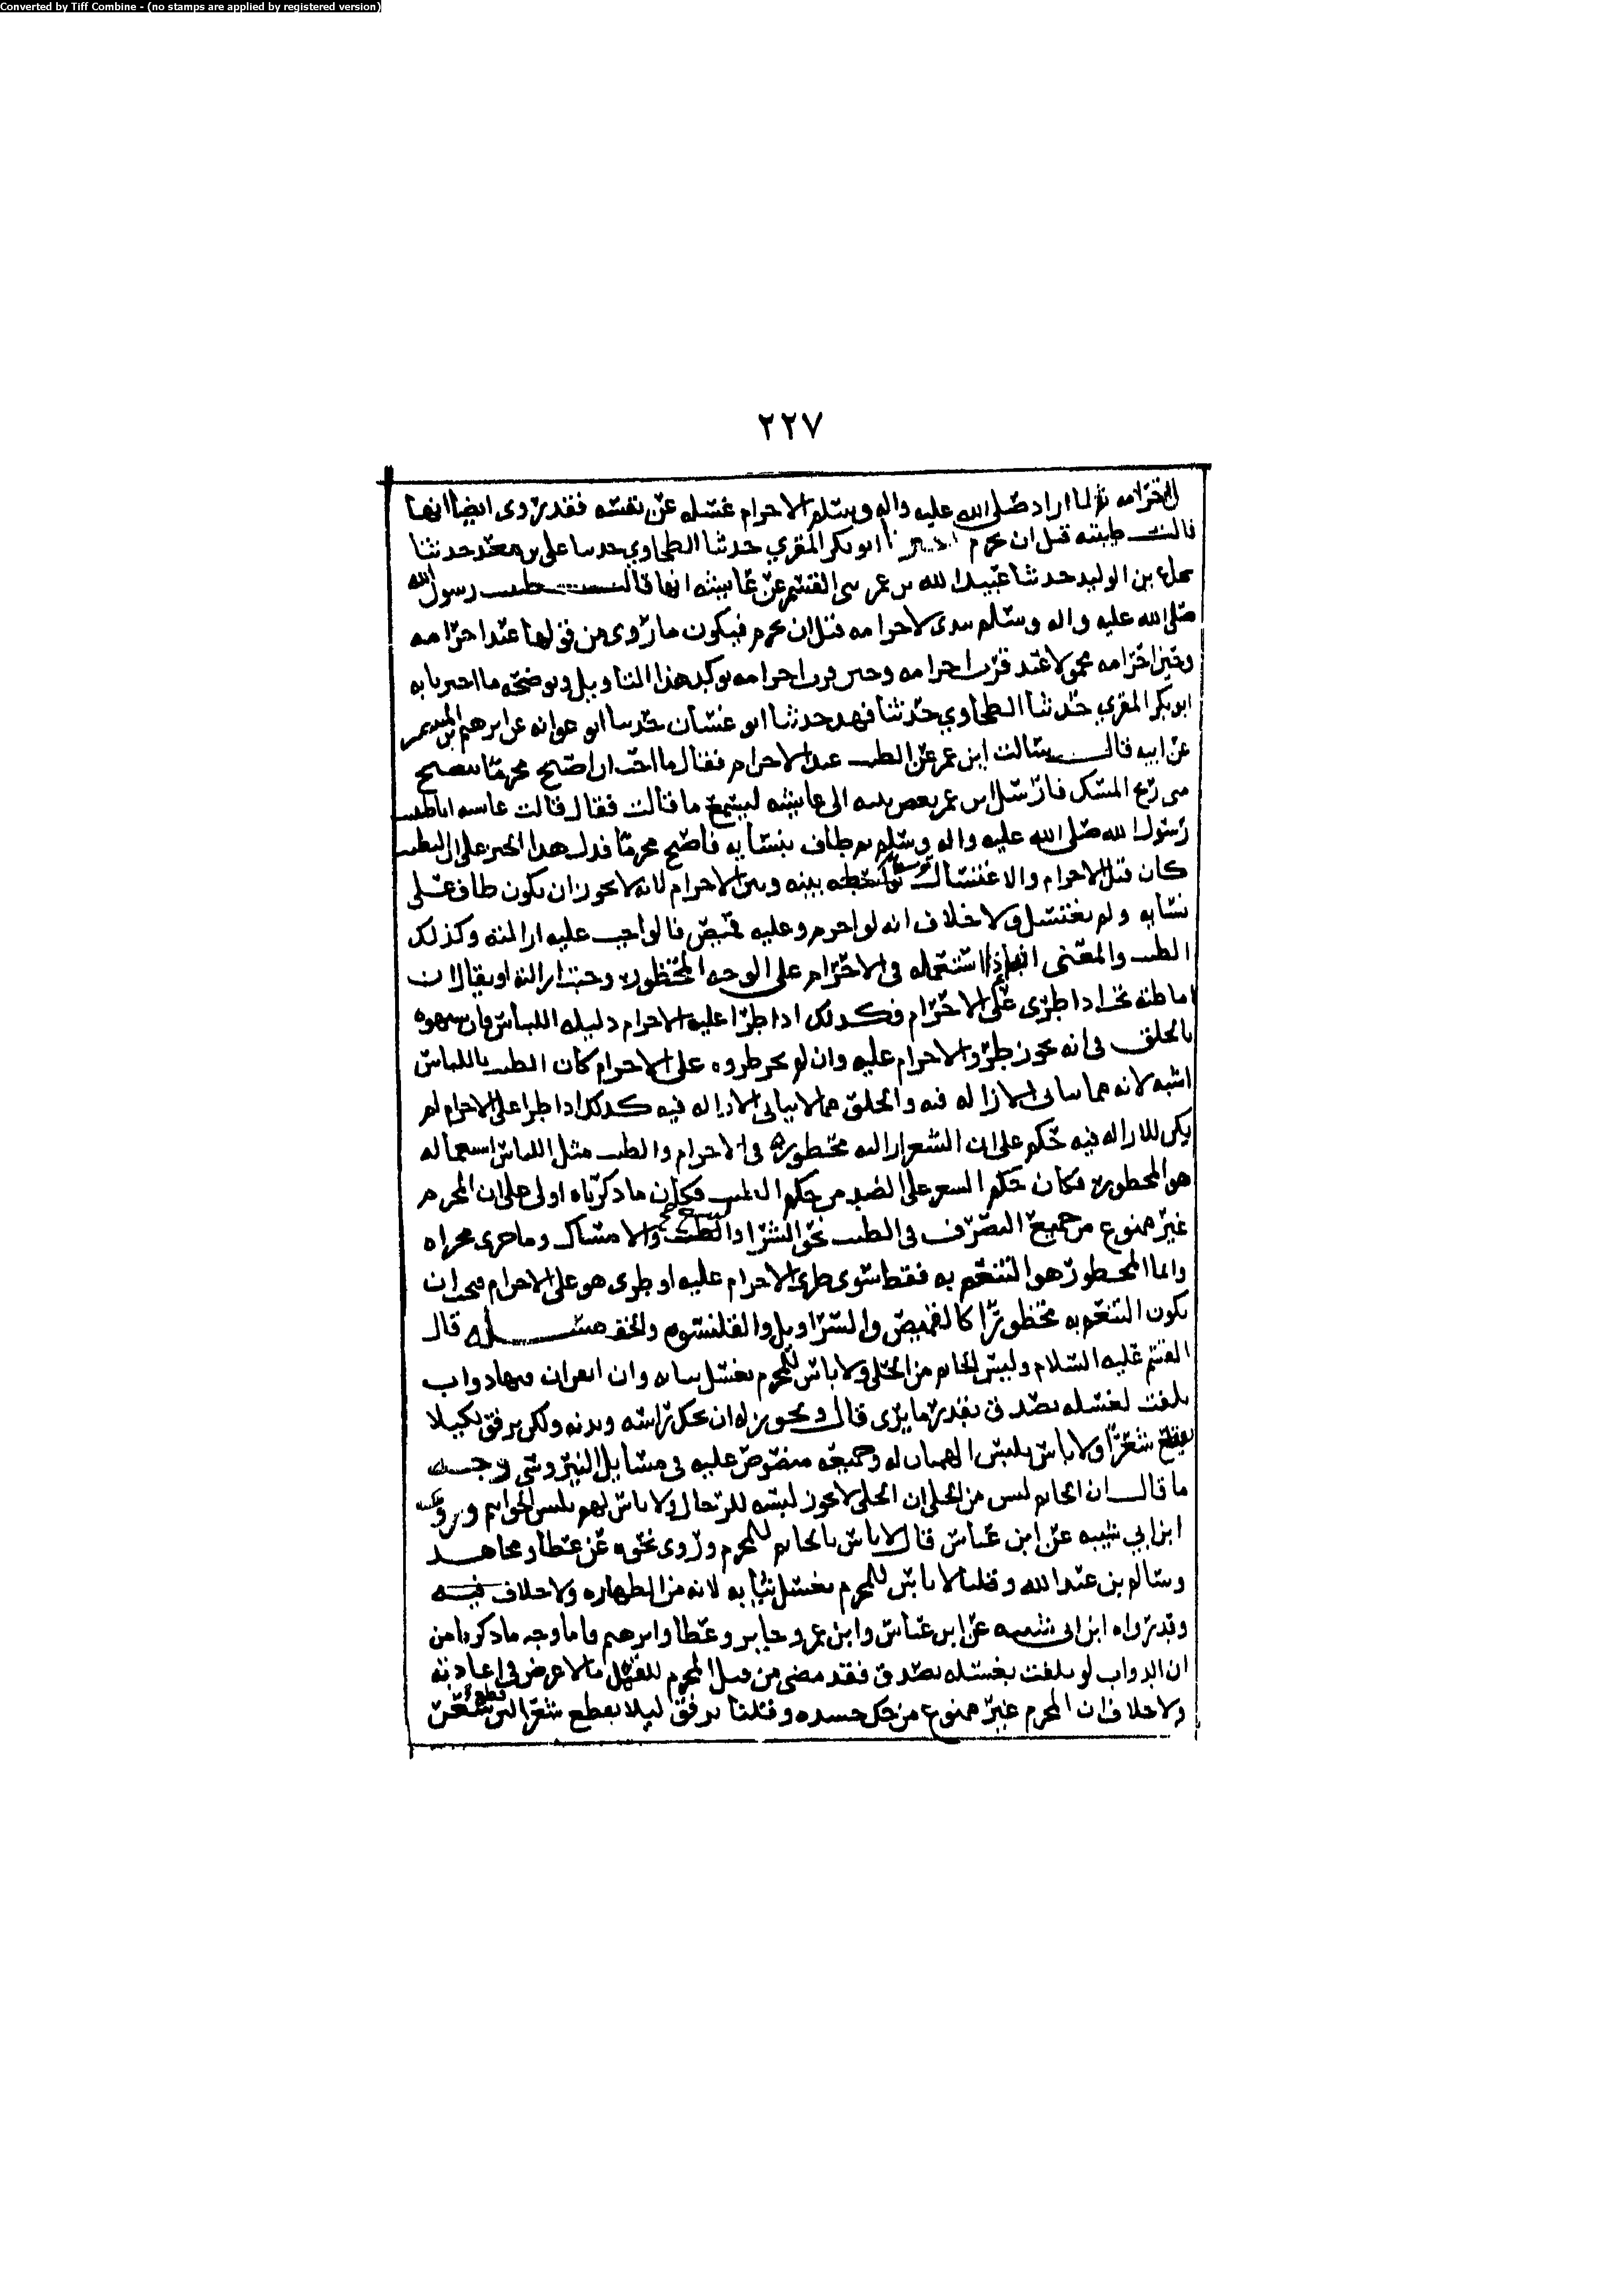 Converted by Tiff Combine - (no stamps are applied by registered version)
٢٢٧
لاحرامه ثم لما اراد صلى الله عليه واله وسلم الاحرام غسله عن نفسه فقد روى ايضا انها
قالت طيبته قبل ان يحرم ابو بكر المقري حدثنا الطحاوي حدثنا على بن معبد حدثنا
شجاع بن الوليد حدثنا عبيد الله بن عمر القسم عن عايشه انها قالت طيبت رسول الله
صلى الله عليه واله وسلم لاحرامه قبل ان يحرم فيكون ما روى من قولها عند احرامه
وحين احرامه محمولا عند قرب احرامه وحين قرب احرامه يوكد هذا التاويل ويوضحه ما اخبرنا به
ابو بكر المقري حدثنا الطحاوي حدثنا فهد حدثنا ابو غسان حدثنا ابو عوانه عن ابرهيم بن المنتشر
عن ابيه قال سالت ابن عمر عن الطيب عند الاحرام فقال ما احب ان اصبح محرما ينضح
منى ريح المسك فارسل ابن عمر بعض بنيه الى عايشه ليسمع ما قالت فقال قالت عايشه انا طيبت
رسول الله صلى الله عليه واله وسلم ثم طاف بنسايه فاصبح محرما فدل هذا الخبر على ان الطيب
كان قبل الاحرام والاغتسال بينه وبين الاحرام لانه لا يجوز ان يكون طاف على
نسايه ولم يغتسل ولا خلاف انه لو احرم وعليه قميص فالواجب عليه ازالته وكذلك
الطيب والمعنى استعماله في الاحرام على الوجه المحظور وجبت ازالته او يقال ان
اماطته تجب اذا طرى على الاحرام فكذلك اذا طرا عليه الاحرام دليله اللباس فان شبهوه
بالحلق في انه يجوز طرو الاحرام عليه وان لم يجز طروه على الاحرام كان الطيب باللباس
اشبه لانه مما يتاتى الازاله فيه والحلق مما لا يتاتى الازاله فيه كذلك اذا طرا على الاحرام لم
يكن للازاله فيه حكم على ان الشعر ازالته محظوره في الاحرام والطيب مثل اللباس استعماله
هو المحظور فكان حكم الشعر على الضد من حكم الطيب فكان ما ذكرناه اولى على ان المحرم
غير ممنوع من جميع التصرف في الطيب نحو الشرا والامساك وما جرى مجراه
وانما المحظور هو التنعم به فقط سوى طرى الاحرام عليه او طرى هو على الاحرام فيجب ان
يكون التنعم به محظورا كالقميص والسراويل والقلنسوه والخف مسئله قال
القسم عليه السلام وليس الخاتم من الحلى ولا باس للمحرم بغسل ثيابه وان ايقن ان فيها دواب
تلفت لغسله تصدق بقدر ما يرى قال ويجوز له ان يحك راسه وبدنه ولكن يرفق لكيلا
يقطع شعرا ولا باس بلبس الهميان له وجميعه منصوص عليه في مسايل النيروسي وجه
ما قال ان الخاتم ليس من الحلى ان الحلى لا يجوز لبسه للرجال ولا باس لهم بلبس الخواتم وروى
ابن ابي شيبه عن ابن عباس قال لا باس بالخاتم للمحرم وروى نحوه عن عطا ومجاهد
وسالم بن عبد الله وقلنا لا باس للمحرم بغسل ثيابه لانه من الطهاره ولا خلاف فيه
وقد رواه ابن ابي شيبه عن ابن عباس وابن عمر وجابر وعطا وابرهيم فاما وجه ما ذكرنا من
ان الدواب لو تلفت بغسله تصدق فقد مضى من قتل المحرم للقمل ما لا غرض في اعادته
ولا خلاف ان المحرم غير ممنوع من حك جسده وقلنا يرفق ليلا يقطع شعرا لان قطع الشعر